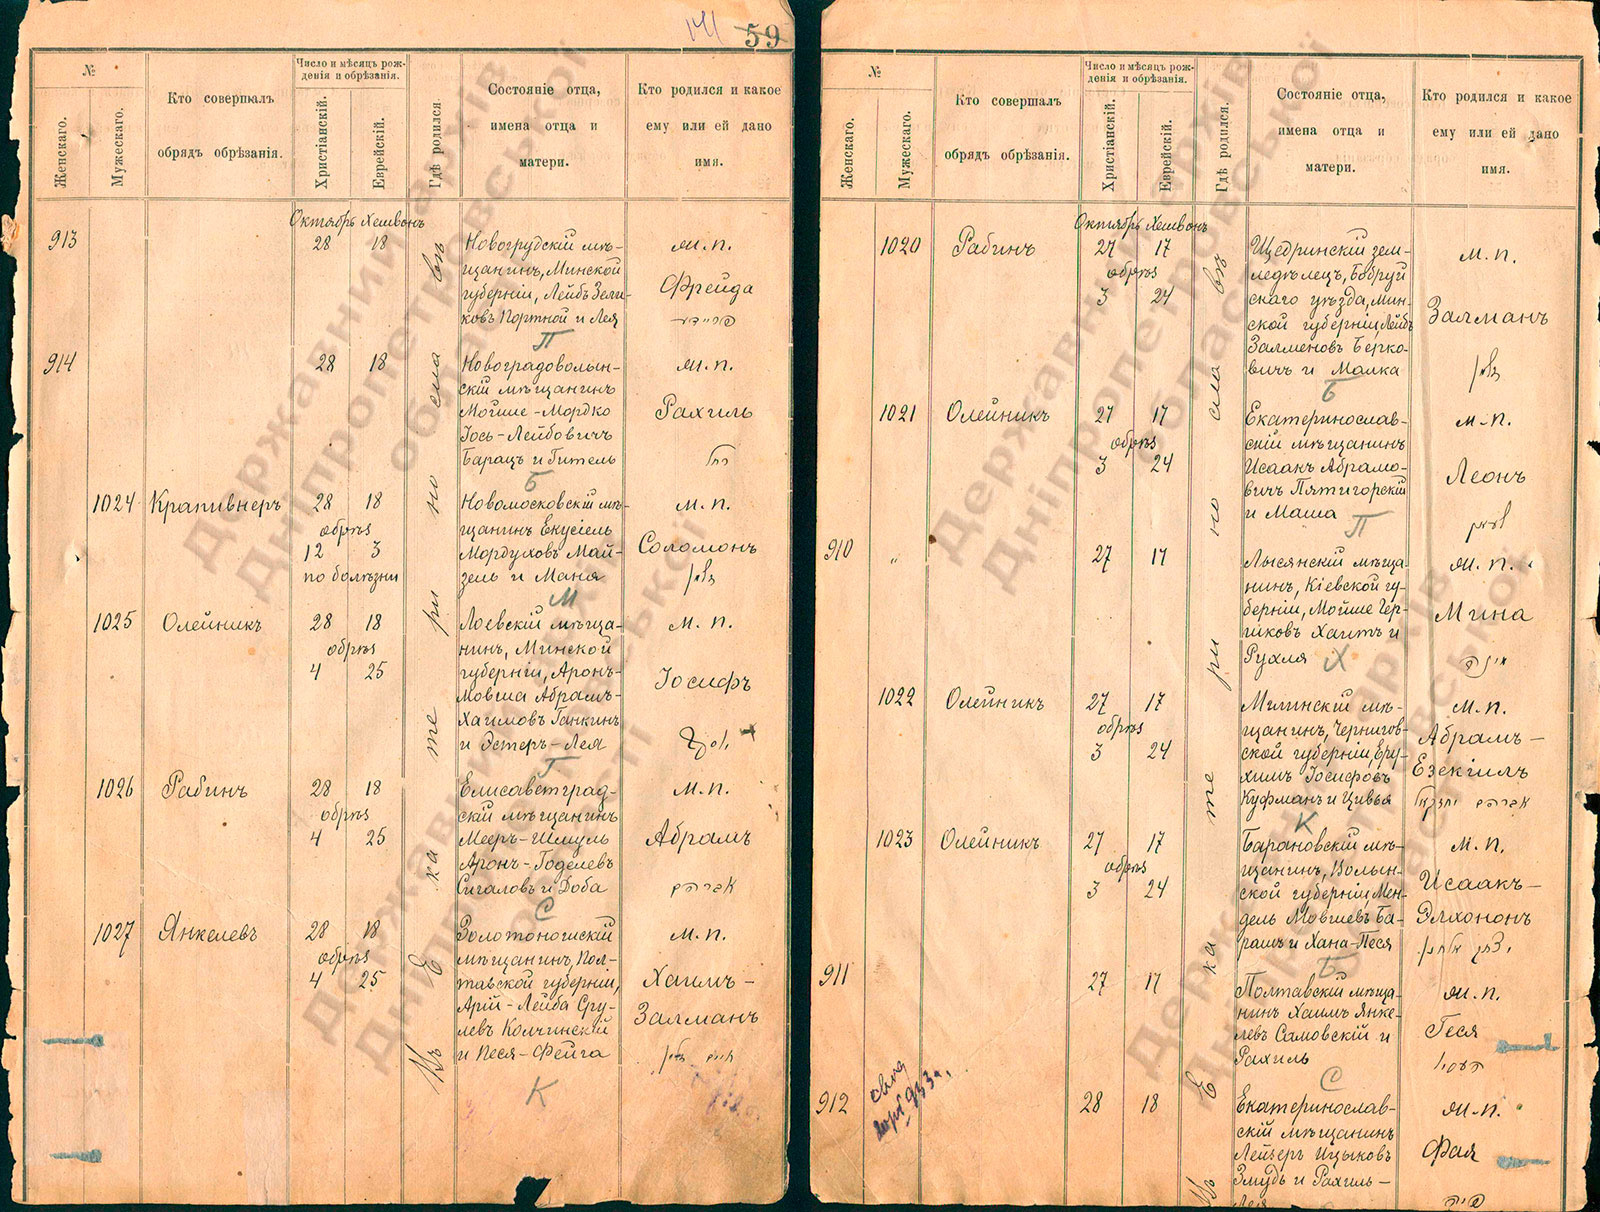 59
№
Женскаго.
Мужескаго.
Кто совершалъ
обрядъ обрѣзанія.
Число и мѣсяцъ рож-
денія и обрѣзанія.
Христіанскій.
Еврейскій.
Гдѣ родился.
Состояніе отца,
имена отца и
матери.
Кто родился и какое
ему или ей дано
имя.
Октябрь Хешвонъ
913
28 18
Новогрудскій мѣ-
щанинъ, Минской
губерніи, Лейбъ Зели-
ковъ Портной и Лея
П
М. П.
Фрейда
פריידע
914
28 18
Новоградволын-
скій мѣщанинъ
Мойше-Мордко
Іось-Лейбовичъ
Барацъ и Гитель
Б
М. П.
Рахиль
רחל
1024 Крапивнеръ
28 18
обрѣз
12 3
по болѣзни
Новомосковскій мѣ-
щанинъ Екусіель
Мордуховъ Май-
зель и Маня
М
М. П.
Соломонъ
זלמן
1025 Олейникъ
28 18
обрѣз
4 25
Лоевскій мѣща-
нинъ, Минской
губерніи, Аронъ-
Мовша Абрамъ-
Хаимовъ Ганкинъ
и Эстеръ-Лея
Г
М. П.
Іосифъ
1026 Рабинъ
28 18
обрѣз
4 25
Елисаветград-
скій мѣщанинъ
Мееръ-Шмуль
Аронъ-Годелевъ
Сигаловъ и Доба
С
М. П.
Абрамъ
אברהם
1027 Янкелевъ
28 18
обрѣз
4 25
Золотоношскій
мѣщанинъ, Пол-
тавской губерніи,
Арій-Лейба Сру-
левъ Колчинскій
и Песя-Фейга
К
М. П.
Хаимъ-
Залманъ
חיים זלמן
Въ Екатеринославѣ
№
Женскаго.
Мужескаго.
Кто совершалъ
обрядъ обрѣзанія.
Число и мѣсяцъ рож-
денія и обрѣзанія.
Христіанскій.
Еврейскій.
Гдѣ родился.
Состояніе отца,
имена отца и
матери.
Кто родился и какое
ему или ей дано
имя.
Октябрь Хешвонъ
1020 Рабинъ
27 17
обрѣз
3 24
Щедринскій зем-
ледѣлецъ, Бобруй
скаго уѣзда, Мин-
ской губерніи Лейбъ
Залменовъ Берко-
вичъ и Малка
Б
М. П.
Залманъ
זלמן
1021 Олейникъ
27 17
обрѣз
3 24
Екатеринослав-
скій мѣщанинъ
Исаакъ Абрамо-
вичъ Пятигорскій
и Маша
П
М. П.
Леонъ
910 "
27 17
Лысянскій мѣща-
нинъ, Кіевской гу-
берніи, Мойше Гер-
шковъ Хаитъ и
Рухля
Х
М. П.
Мина
מינה
1022 Олейникъ
27 17
обрѣз
3 24
Мглинскій мѣ-
щанинъ, Чернигов-
ской губерніи, Еру-
химъ Іосифовъ
Куфманъ и Цивья
К
М. П.
Абрамъ-
Езекіиль
אברהם יחזקאל
1023 Олейникъ
27 17
обрѣз
3 24
Барановскій мѣ-
щанинъ, Волын-
ской губерніи, Мен-
дель Мовшевъ Ба-
рашъ и Хана-Песя
Б
М. П.
Исаакъ-
Элхононъ
יצחק אלחנן
911
27 17
Полтавскій мѣща-
нинъ Хаимъ Янке-
левъ Самовскій и
Рахиль
С
М. П.
Геся
912
28 18
Екатеринослав-
скій мѣщанинъ
Лейзеръ Ицыковъ
Змудь и Рахиль-
Лея
М. П.
Фая
פייה
Въ Екатеринославѣ
Державний архів
Дніпропетровської
області